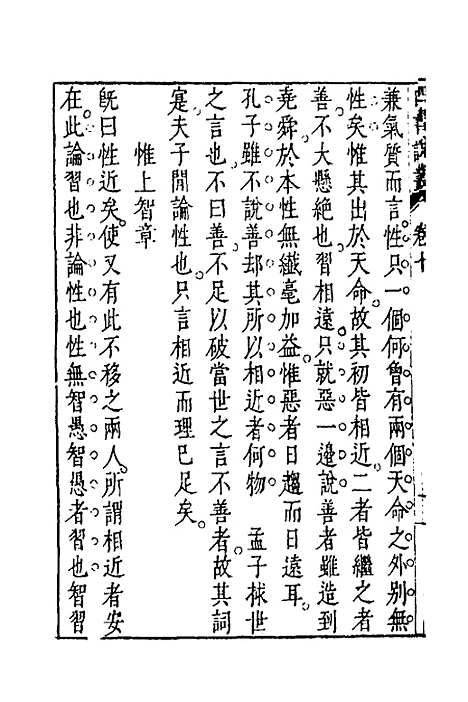 兼氣質而言性只一個何曾有兩個天命之外別無
性矣惟其出於天命故其初皆相近二者皆繼之者
善不大懸絶也習相遠只就惡一邊說善者雖造到
堯舜於本性無纎毫加益惟惡者日趨而日遠耳
孔子雖不說善却其所以相近者何物　孟子救世
之言也不曰善不足以破當世之言不善者故其詞
寔夫子閒論性也只言相近而理已足矣
惟上智章
既曰性近矣使又有此不移之兩人所謂相近者安
在此論習也非論性也性無智愚智愚者習也智習
卷十